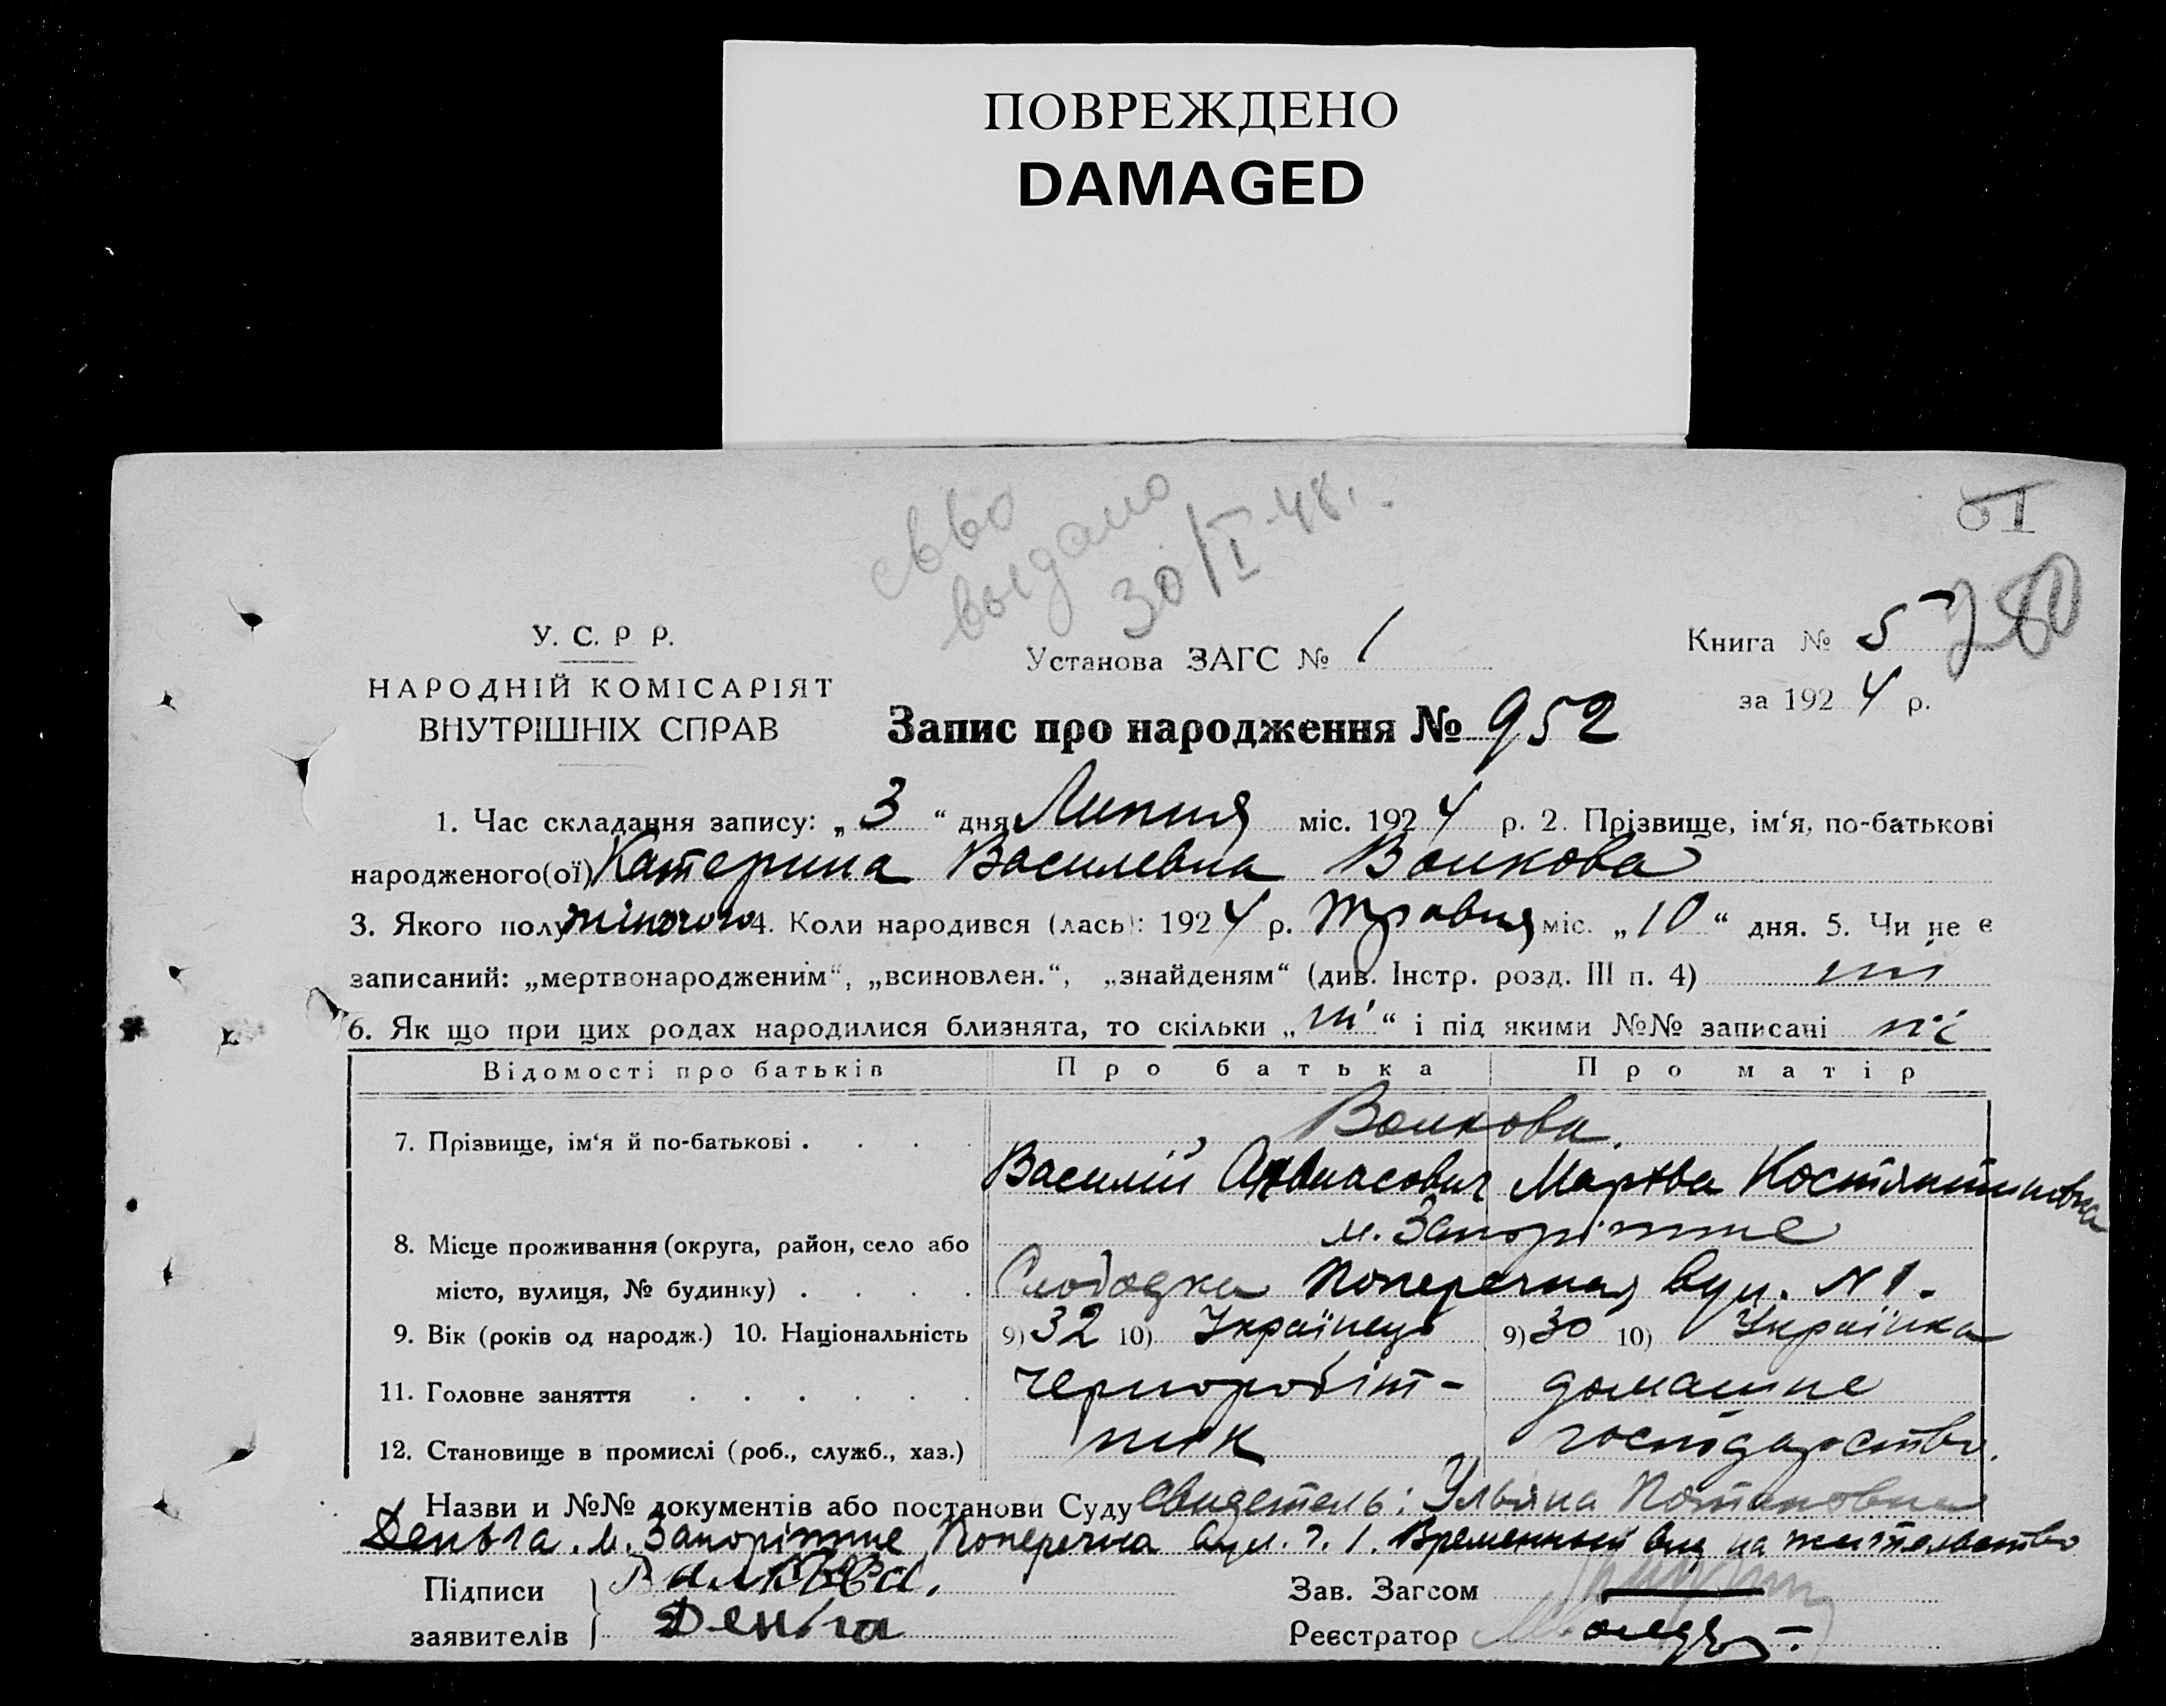 ПОВРЕЖДЕНО
DAMAGED
свво
выдано
30/I-48.
61
280
У. С. Р Р.
НАРОДНІЙ КОМІСАРІЯТ
ВНУТРІШНІХ СПРАВ
Установа ЗАГС № 1
Книга № 5
за 1924 р.
Запис про народження № 952
1. Час складання запису: „3“ дня Липня міс. 1924 р. 2. Прізвище, ім‘я, по-батькові
народженого(ої) Катерина Василевна Волкова
3. Якого полу жіночого 4. Коли народився (лась): 1924 р. травня міс. „10“ дня. 5. Чи не є
записаний: „мертвонародженим“, „всиновлен.“, „знайденям“ (див. Інстр. розд. III п. 4) ні
6. Як що при цих родах народилися близнята, то скільки „ні“ і під якими №№ записані ні
Відомості про батьків Про батька Про матір
7. Прізвище, ім‘я й по-батькові . . . . Волкови.
Василій Афанасович Марфа Костянтиновна
8. Місце проживання (округа, район, село або м. Запоріжже
місто, вулиця, № будинку) . . . . Слободка Поперечная вул. N 1.
9. Вік (років од народж.) 10. Національність 9) 32 10) Українець 9) 30 10) Українка
11. Головне заняття . . . . . . чорноробіт- домашне
12. Становище в промислі (роб., служб., хаз.) ник господарство.
Назви и №№ документів або постанови Суду Свидетель: Ульяна Потаповна
Деньга. м. Запоріжже Поперечна вул. ч. 1. Временный вид на жительство
Підписи Валкова.
заявителів Деньга
Зав. Загсом
Реєстратор